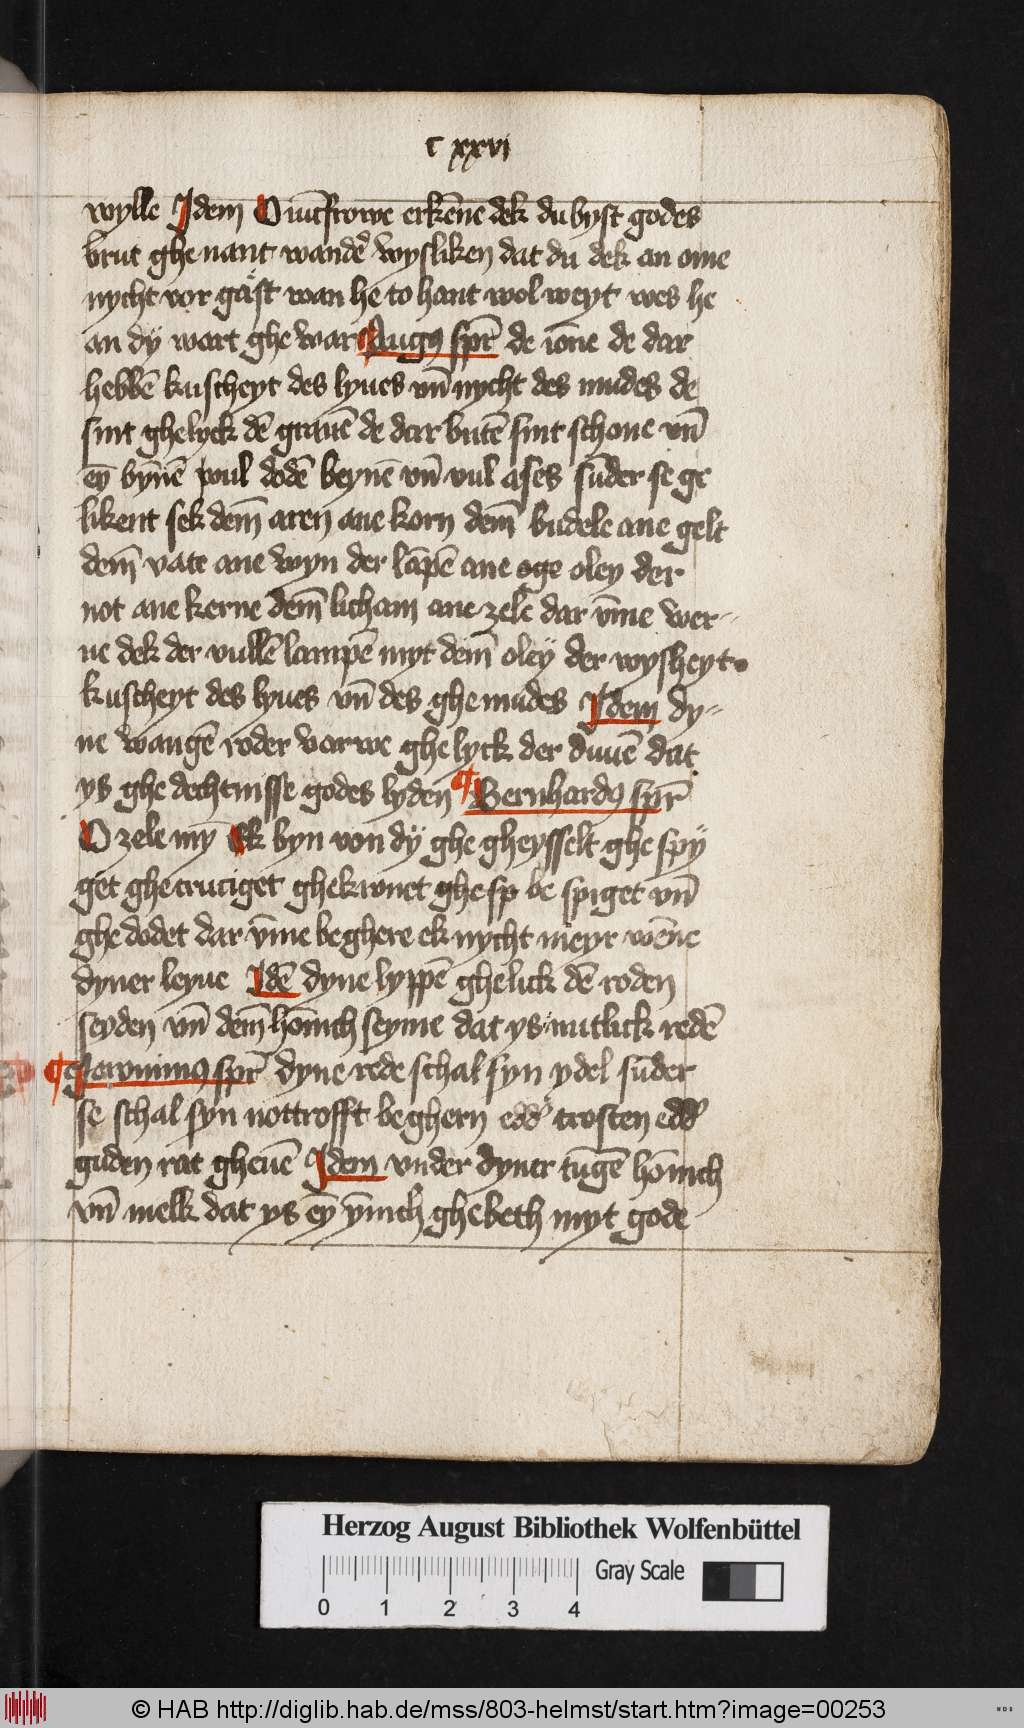 c xxvi
wylle Idem O iūcfrowe erkēne dek du byst godes
brut ghe nant wandē wysliken dat du dek an ome
nycht vor gäst wan he to hant wol weyt wes he
an dÿ wart ghe war Augꝯ spr̄ de iōne de dar
hebbē kuscheyt des lyues vn̄ nycht des mudes de
sint ghelyck dē grauē de dar butē sint schone vn̄
ey̅ bȳnē vul dodē beynē vn̄ vul ases sūder se ge
likent sek dem̄ aren ane korn dem̄ budele ane gelt
dem̄ vate ane wyn der lāpē ane oley der
not ane kerne dem̄ licham ane zele dar v̄me wer-
ne dek der vullē lampē myt dem̄ oleÿ der wysheyt
kuscheyt des lyues vn̄ des ghe mudes Idem dy-
ne wangē roder varwe ghe lyck der duuē dat
ys ghe dechtnisse godes lyden ¶ Bernhardꝯ spr̄
O zele my̅ Ek byn von dÿ ghe gheysselt ghe spÿ
get ghecruciget ghekronet be spiget vn̄
ghe dodet dar v̄me beghere ek nycht meyr wēne
dyner leyue Idē dyne lyppē ghelick dē roden
seyden vn̄ dem̄ hōnich seyme dat ys nutlick redē
¶ Jeronimꝯ spr̄ dyne rede schal syn ydel sūder
se schal syn nottrofft beghern edd' trosten edd'
guden rat gheuē Idem vnder dyner tūgē hōnich
vn̄ melk dat ys ey̅ ȳnich ghebeth myt gode
Herzog August Bibliothek Wolfenbüttel
0 1 2 3 4
Gray Scale
© HAB http://diglib.hab.de/mss/803-helmst/start.htm?image=00253